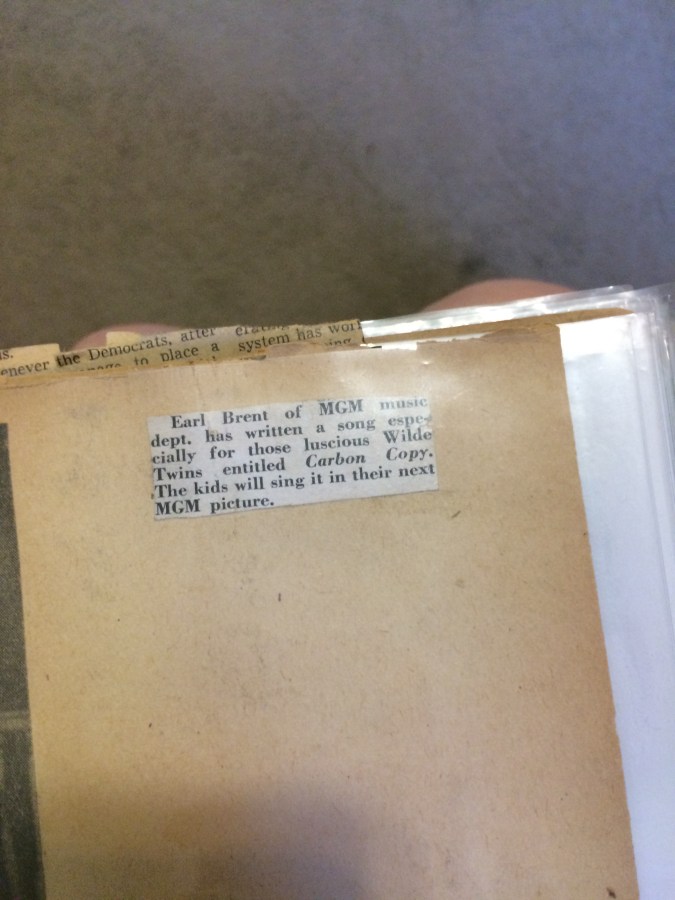 s.
enever the Democrats, after
to place a system has wor
Earl Brent of MGM music
dept. has written a song espe-
cially for those luscious Wilde
Twins entitled Carbon Copy.
The kids will sing it in their next
MGM picture.